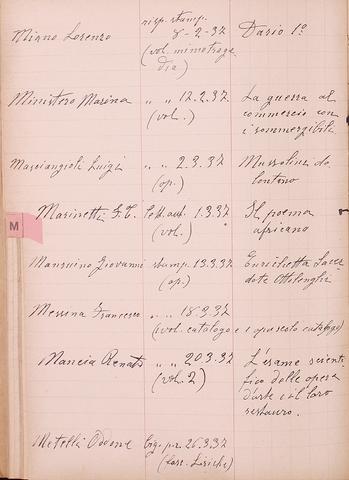 Miano Lorenzo risp. stamp. 8-2-37 Dario 1º
(vol. mimotrage
dia)
Ministero Marina " " 12.2.37 La guerra al
(vol.) commercio con
i sommergibili
Marciangioli Luigi " " 2.3.37 Mussolini do
(op.) lentino
Marinetti F.T. lett. aut. 1.3.37 Il poema
(vol.) africano
M
Mansuino Giovanni stamp. 13.3.37 Enrichetta Sacer
(op.) dote Ottolenghi
Messina Francesco " " 18.3.37
(vol. catalogo e 1 opuscolo catalogo)
Mancia Renato " " 20.3.37 L'esame scienti
(vol. 2) fico delle opere
d'arte e il loro
restauro.
Metelli Odone 26.3.37
(fasc. Liriche)